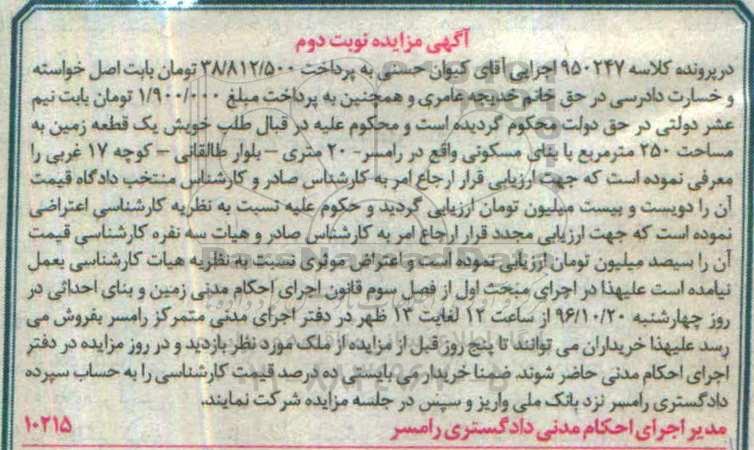 آگهی مزایده نوبت دوم
درپرونده کلاسه ۹۵۰۲۴۷ اجرایی آقای کیوان حسنی به پرداخت ۳۸/۸۱۲/۵۰۰ تومان بابت اصل خواسته
و خسارت دادرسی در حق خانم خدیجه عامری و همچنین به پرداخت مبلغ ۱/۹۰۰/۰۰۰ تومان بابت نیم
عشر دولتی در حق دولت محکوم گردیده است و محکوم علیه در قبال طلب خویش یک قطعه زمین به
مساحت ۲۵۰ مترمربع با بنای مسکونی واقع در رامسر- ۲۰ متری – بلوار طالقانی – کوچه ۱۷ غربی را
معرفی نموده است که جهت ارزیابی قرار ارجاع امر به کارشناس صادر و کارشناس منتخب دادگاه قیمت
آن را دویست و بیست میلیون تومان ارزیابی گردید و حکوم علیه نسبت به نظریه کارشناسی اعتراضی
نموده است که جهت ارزیابی مجدد قرار ارجاع امر به کارشناس صادر و هیات سه نفره کارشناسی قیمت
آن را سیصد میلیون تومان ارزیابی نموده است و اعتراض موثری نسبت به نظریه هیات کارشناسی بعمل
نیامده است علیهذا در اجرای مبحث اول از فصل سوم قانون اجرای احکام مدنی زمین و بنای احداثی در
روز چهارشنبه ۹۶/۱۰/۲۰ از ساعت ۱۲ لغایت ۱۳ ظهر در دفتر اجرای مدنی متمرکز رامسر بفروش می
رسد علیهذا خریداران می توانند تا پنج روز قبل از مزایده از ملک مورد نظر بازدید و در روز مزایده در دفتر
اجرای احکام مدنی حاضر شوند. ضمنا خریدار می بایستی ده درصد قیمت کارشناسی را به حساب سپرده
دادگستری رامسر نزد بانک ملی واریز و سپس در جلسه مزایده شرکت نمایند.
مدیر اجرای احکام مدنی دادگستری رامسر ۱۰۲۱۵